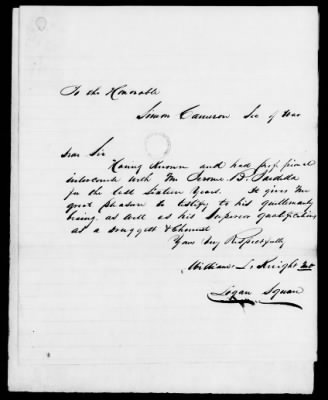 To the Honorable
Simon Cameron Sec of War
Dear Sir
Having known and had professional
intercourse with Mr Jerome B.
for the last Sixteen Years. It gives me
great pleasure to testify to his gentlemanly
being as well as his Superior qualifications
as a druggist & Chemist
Yours very Respectfully
William L. Knight MD
Logan Square